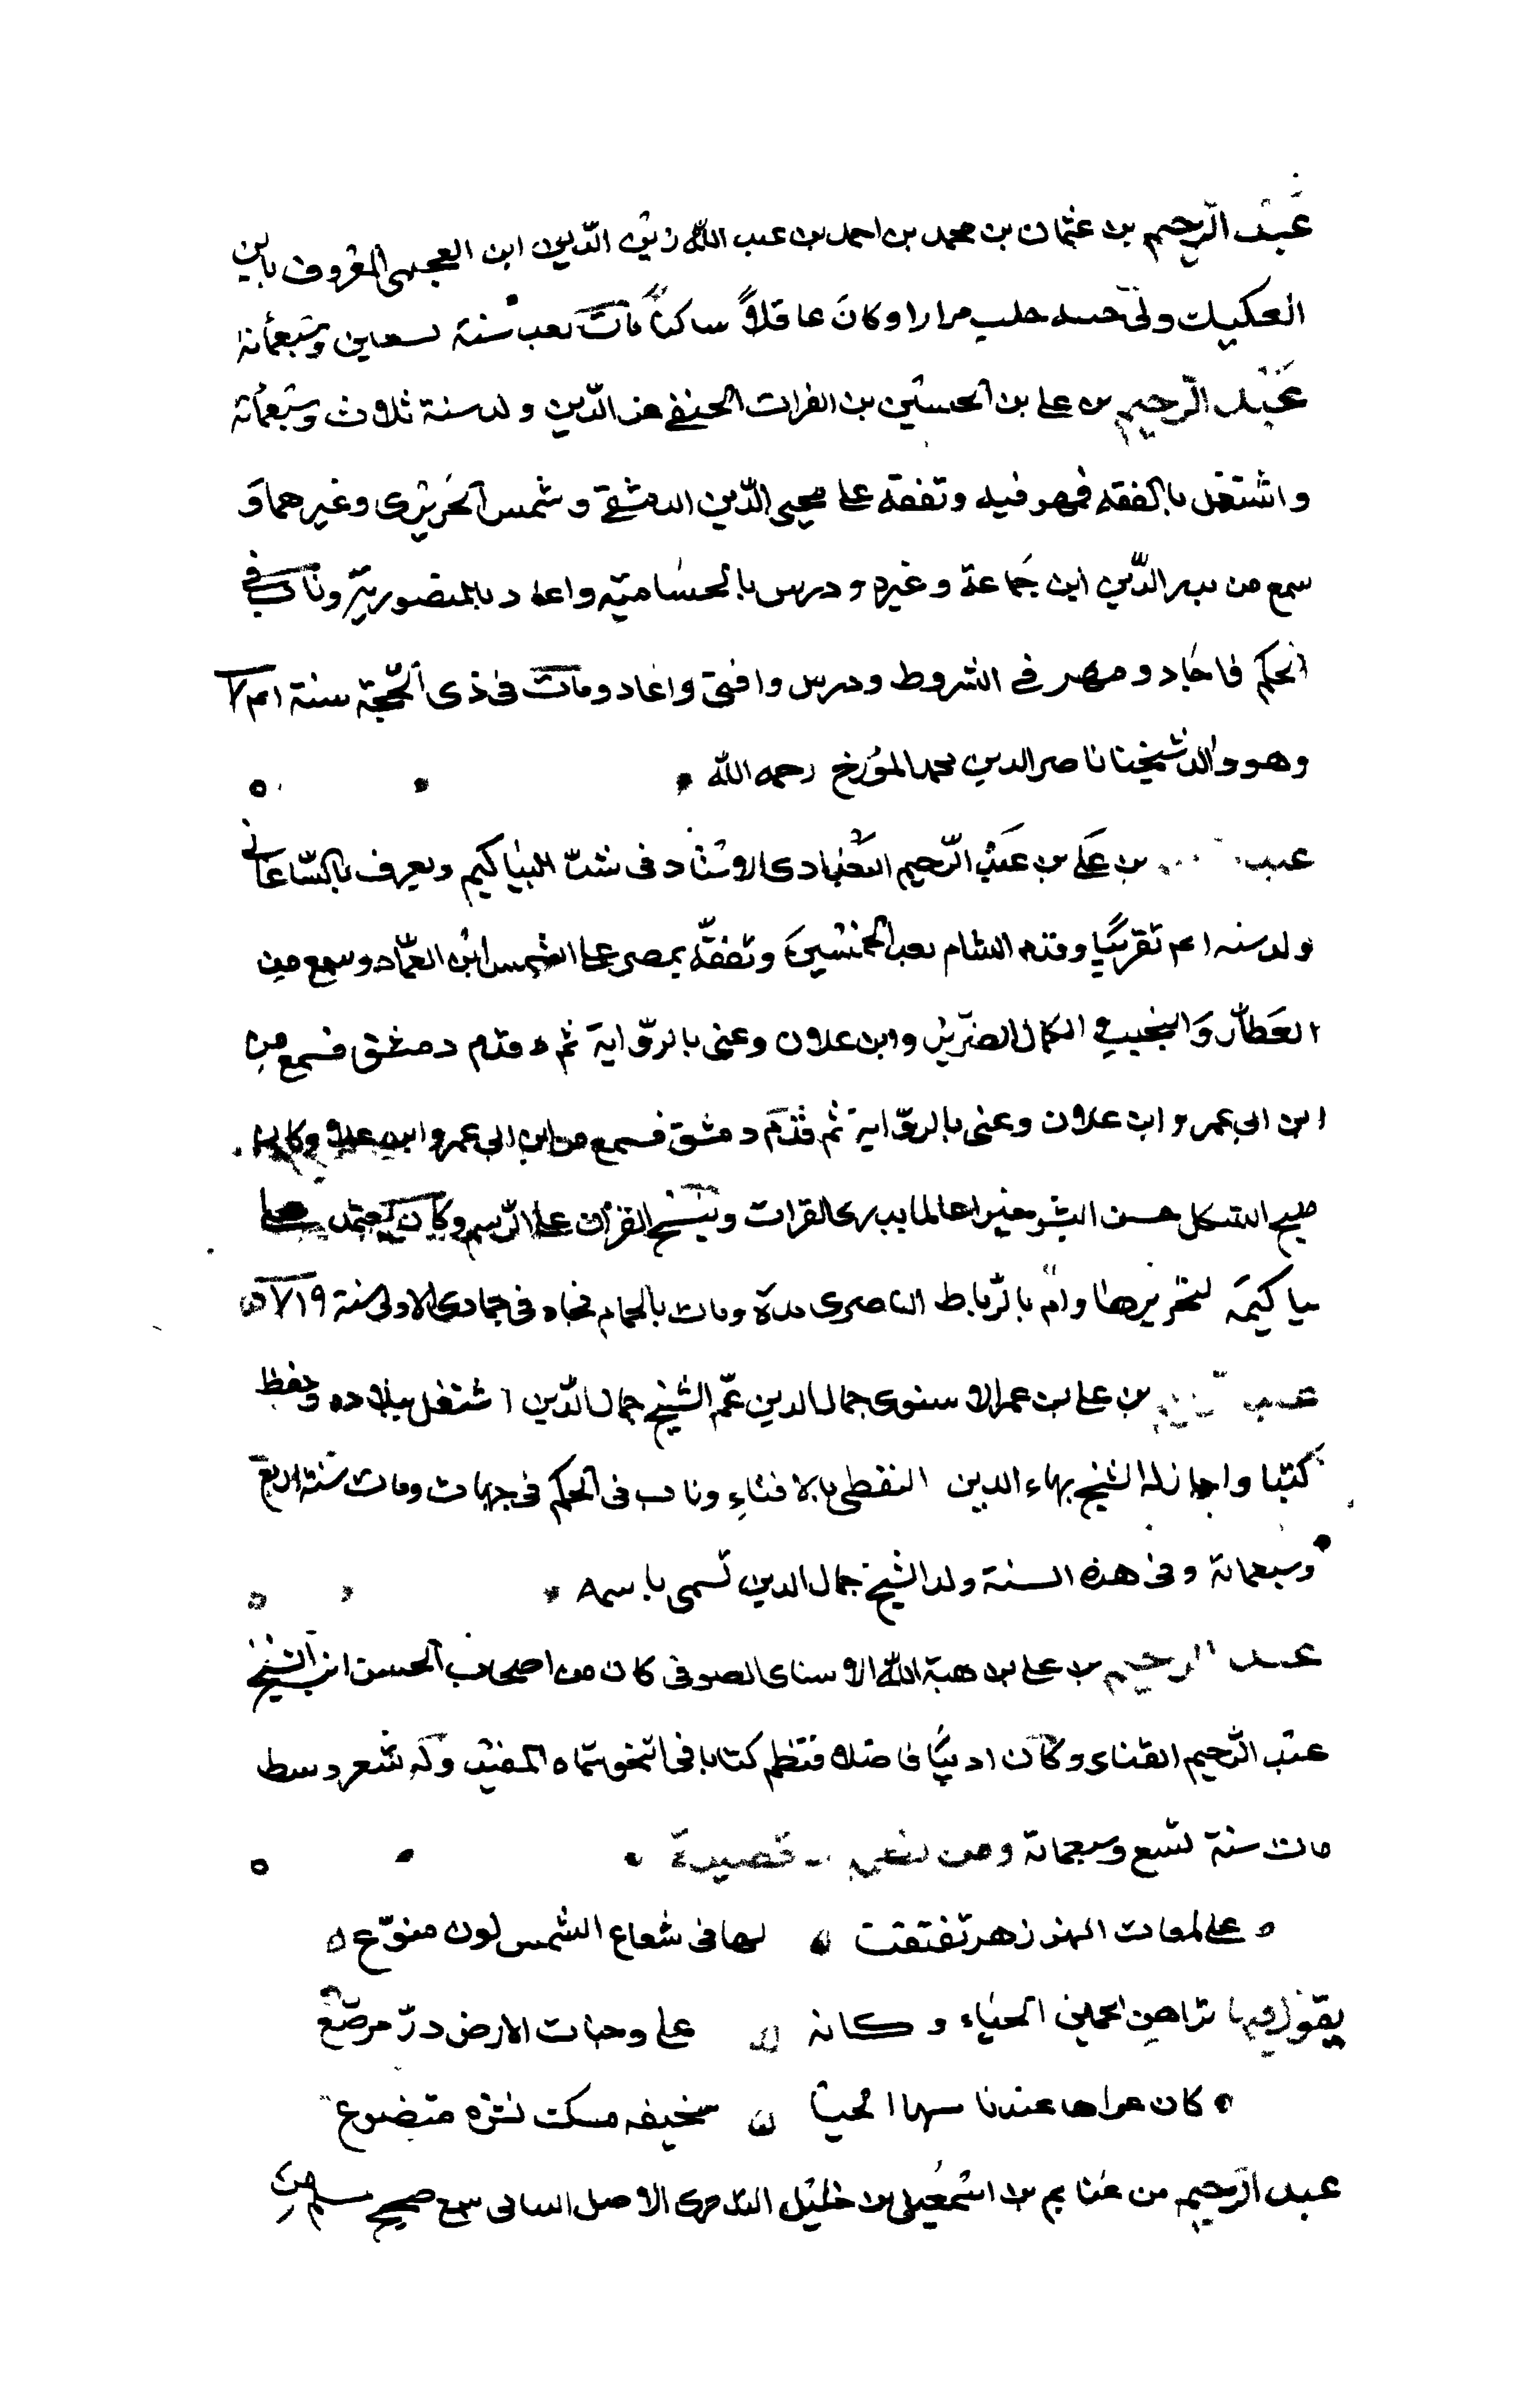 عبد الرحيم بن عثمان بن محمد بن احمد بن عبد الله زين الدين ابن العجمي المعروف بابن
العكيك ولي حسبه حلب مرارا وكان عاقلاً ساكناً مات بعد سنة سبعين وسبعمائة
عبد الرحيم بن علي بن الحسين بن الفرات الحنفي عز الدين ولد سنة ثلاث وسبعمائة
واشتغل بالفقه فمهر فيه وتفقه على محيي الدين الدمشقي وشمس الحريري وغيرهما و
سمع من بدر الدين ابن جماعة وغيره ودرس بالحسامية واعاد بالمنصورية وناب في
الحكم فاجاد ومهر في الشروط ودرس وافتى واعاد ومات في ذي الحجة سنة ٧٤١
وهو والد شيخنا ناصر الدين محمد المؤرخ رحمه الله
عبد بن علي بن عبد الرحيم البغدادي الاستاد في شد البياكيم ويعرف بالساعاتي
ولد سنه ٤١ تقريبًا وقدم الشام بعد الخمسين وتفقّه بمصر على الشمس ابن العمّاد وسمع من
العطار والنجيب و الكمال الضرير وابن علان وعني بالرّواية ثم قدم دمشق فسمع من
ابن ابي عمر وابن علان وعنى بالروّاية ثم قدم دمشق فسمع من ابن ابي عمر وابن علان وكان
مليح الشكل حسن البشر خيرا عالما يدري القرات وينسخ القران على الرسم وكان يعتمد
بياكيمه لتحريرها وامّ بالرّباط الناصري مدة ومات بالحمام فجاه في جمادى الاولى سنة ٧١٩
عبد بن علي بن عمر الاسنوي جمال الدين عمّ الشيخ جمال الدّين اشتغل ببلاده وحفظ
كتبا واجازله الشيخ بهاء الدين القفطي بالافتاءِ وناب في الحكم في جهات ومات سنة اربع
وسبعمائة وفي هذه السنة ولد الشيخ جمال الدين تسمى باسمه
عبد الرحيم بن علي بن هبة الله الاسناى الصوفي كان من اصحاب الحسن ابن الشيخ
عبد الرحيم القناي وكان اديبًا فاضلا فنظم كتابا في النحو سماه المفيد وله شعر وسط
مات سنة تسع وسبعمائة ومن قصيدة
على لمعات النور زهر تفتقت لها في شعاع الشمس لون منوّع
الحياء وكانه على وجنات الارض درّ مرصّع
كان عندنا مسكت نشره متضوع
عبد الرحيم بن غنايم بن اسمعيل بن خليل التدمري الاصل البياني سمع صحيح مسلم من